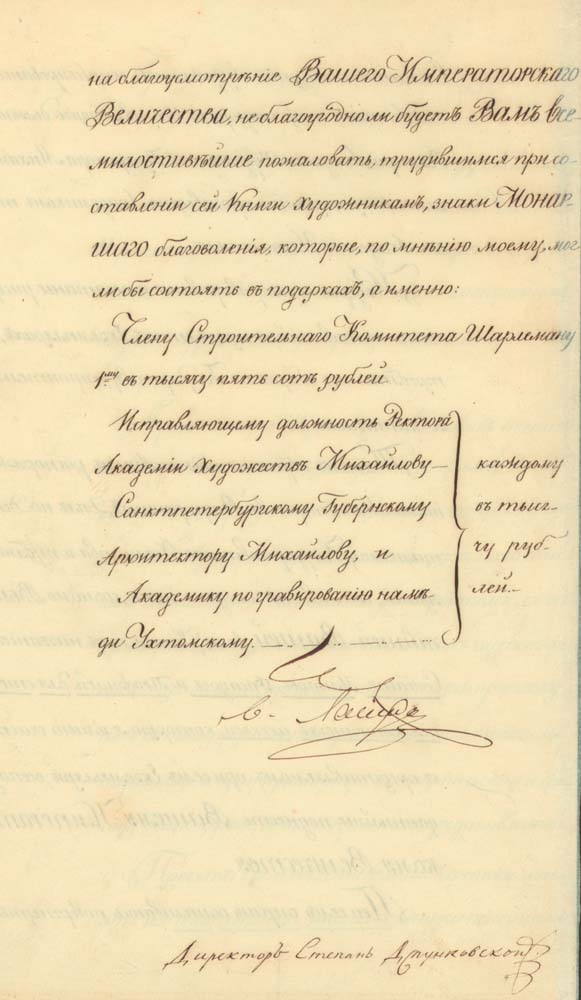 на благоусмотрѣніе Вашего Императорскаго
Величества, не благоугодно ли будетъ Вамъ Все-
милостивѣйше пожаловать, трудившимся при со-
ставленіи сей Книги Художникамъ, знаки Монар-
шаго благоволенія, которые, по мнѣнію моему, мог-
ли бы состоять въ подаркахъ, а именно:
Члену Строительнаго Комитета Шарлеману
1му въ тысячу пять сотъ рублей
Исправляющему должность Ректора
Академіи Художествъ Михайлову
Санктпетербургскому Губернскому
Архитектору Михайлову, и
Академику по гравированію на мѣ-
ди Ухтомскому.
каждому
въ тыся-
чу руб-
лей.
Директоръ Степанъ